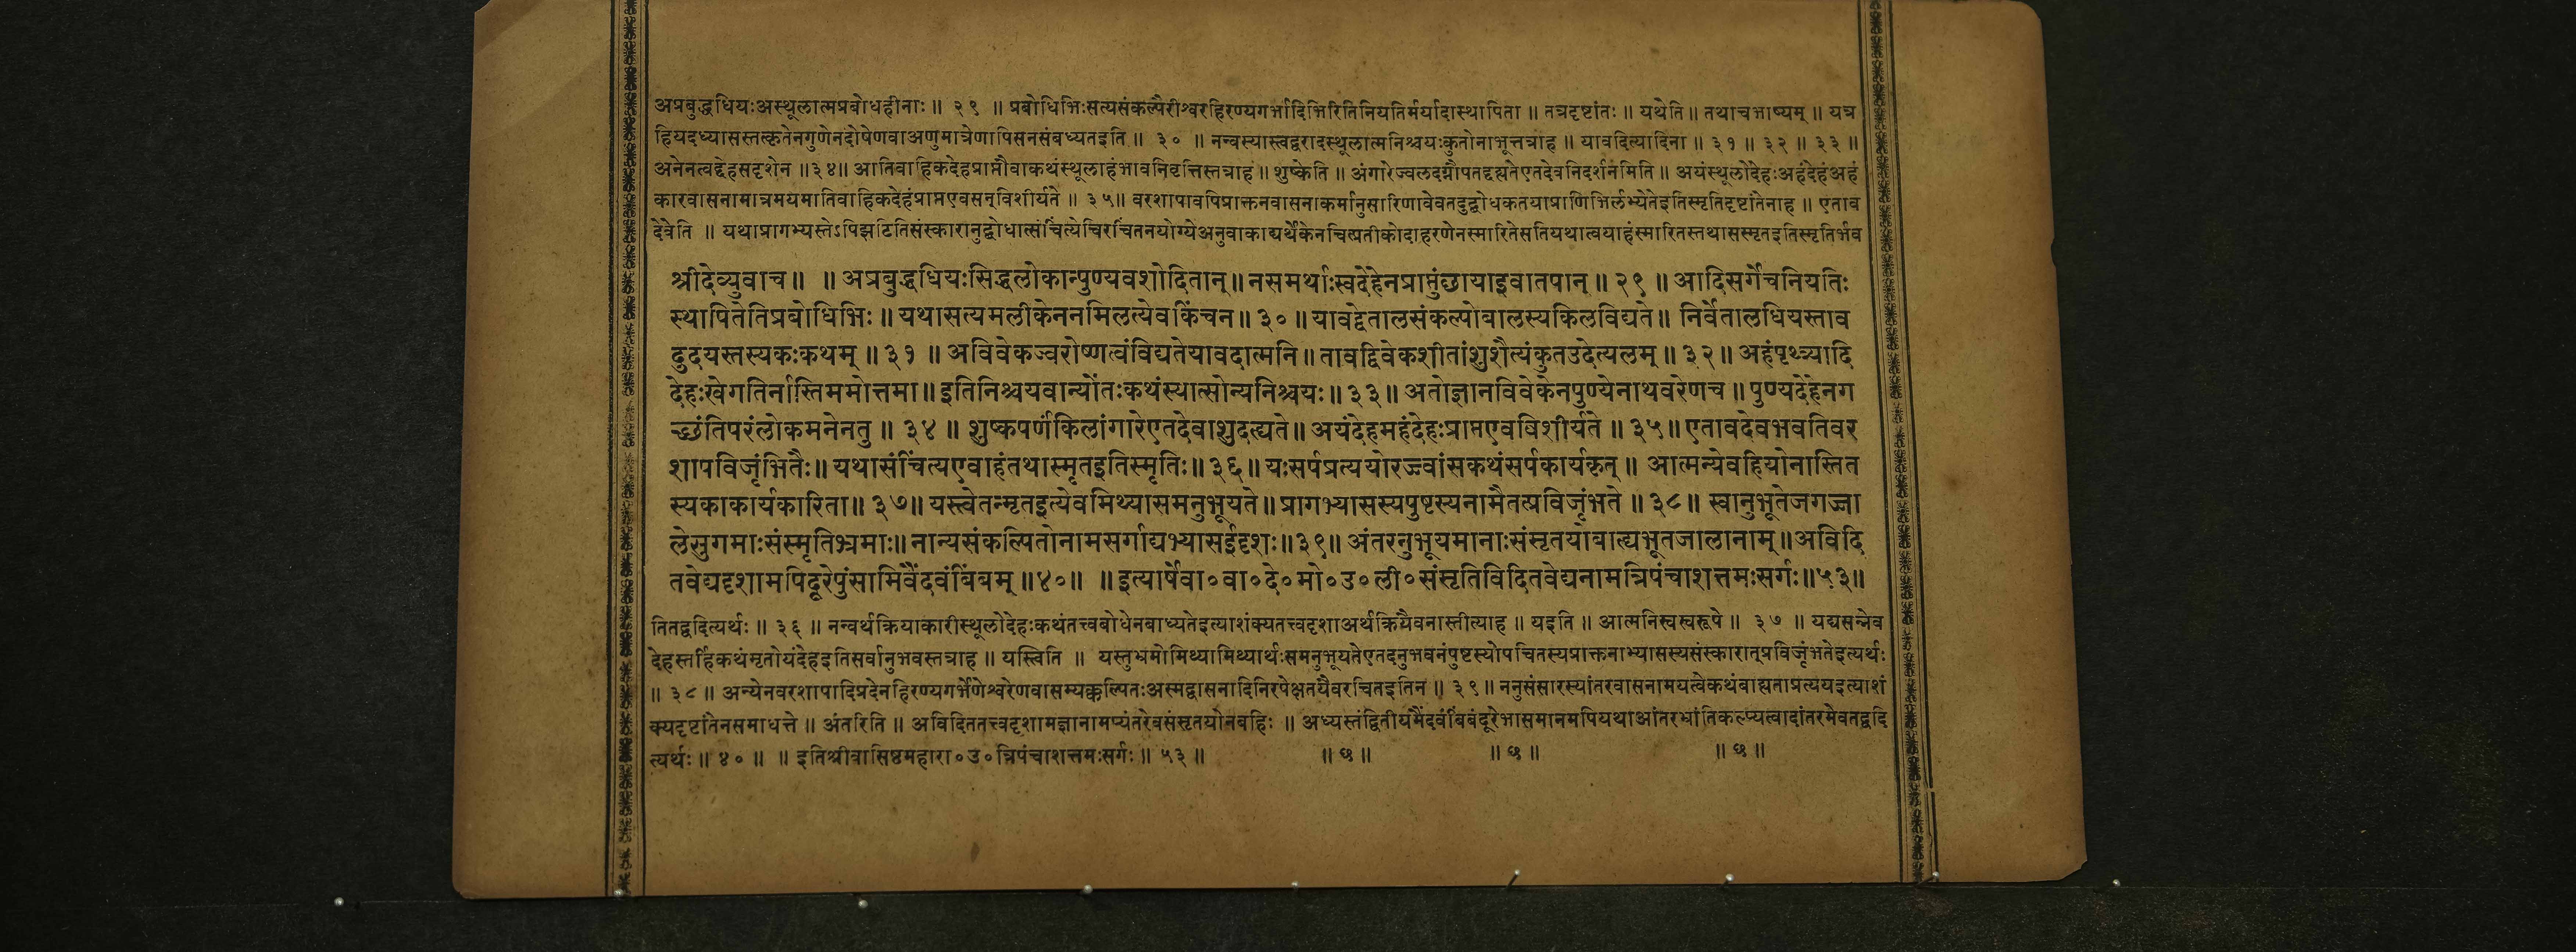 अप्रबुद्धधियःअस्थूलात्मप्रबोधहीनाः ॥ २९ ॥ प्रबोधिभिःसत्यसंकल्पैरीश्वरहिरण्यगर्भादिभिरितिनियतिर्मर्यादास्थापिता ॥ तत्रदृष्टांतः ॥ यथेति ॥ तथाचभाष्यम् ॥ यत्र
हियदध्यासस्तत्कृतेनगुणेनदोषेणवाअणुमात्रेणापिसनसंबध्यतइति ॥ ३० ॥ नन्वस्यास्त्वद्वरादस्थूलात्मनिश्चयःकुतोनाभूत्तत्राह ॥ यावदित्यादिना ॥ ३१ ॥ ३२ ॥ ३३ ॥
अनेनत्वद्देहसदृशेन ॥३४॥ आतिवाहिकदेहप्राप्तौवाकथंस्थूलाहंभावनिवृत्तिस्तत्राह ॥ शुष्केति ॥ अंगारेज्वलदग्नौपतद्दह्यतेएतदेवनिदर्शनमिति ॥ अयंस्थूलोदेहःअहंदेहंअहं
कारवासनामात्रमयमातिवाहिकदेहंप्राप्तएवसन्विशीर्यते ॥ ३५॥ वरशापावपिप्राक्तनवासनाकर्मानुसारिणावेवतदुद्बोधकतयाप्राणिभिर्लभ्येतेइतिस्मृतिदृष्टांतेनाह ॥ एताव
देवेति ॥ यथाप्रागभ्यस्तेऽपिझटितिसंस्कारानुद्बोधात्संचिंत्येचिरचिंतनयोग्येअनुवाकाद्यर्थेकेनचित्प्रतीकोदाहरणेनस्मारितेसतियथात्वयाहंस्मारितस्तथासस्मृतइतिस्मृतिर्भव
श्रीदेव्युवाच ॥ ॥ अप्रबुद्धधियःसिद्धलोकान्पुण्यवशोदितान् ॥ नसमर्थाःस्वदेहेनप्राप्तुंछायाइवातपान् ॥ २९ ॥ आदिसर्गेचनियतिः
स्थापितेतिप्रबोधिभिः ॥ यथासत्यमलीकेननमिलत्येवकिंचन ॥ ३० ॥ यावद्वेतालसंकल्पोबालस्यकिलविद्यते ॥ निर्वेतालधियस्ताव
दुदयस्तस्यकःकथम् ॥ ३१ ॥ अविवेकज्वरोष्णत्वंविद्यतेयावदात्मनि ॥ तावद्विवेकशीतांशुशैत्यंकुतउदेत्यलम् ॥ ३२ ॥ अहंपृथ्व्यादि
देहःखेगतिर्नास्तिममोत्तमा ॥ इतिनिश्चयवान्योंतःकथंस्यात्सोन्यनिश्चयः ॥ ३३ ॥ अतोज्ञानविवेकेनपुण्येनाथवरेणच ॥ पुण्यदेहेनग
च्छंतिपरंलोकमनेनतु ॥ ३४ ॥ शुष्कपर्णंकिलांगारेएतदेवाशुदह्यते ॥ अयंदेहमहंदेहःप्राप्तएवविशीर्यते ॥ ३५ ॥ एतावदेवभवतिवर
शापविजृंभितैः ॥ यथासंचिंत्यएवाहंतथास्मृतइतिस्मृतिः ॥ ३६ ॥ यःसर्पप्रत्ययोरज्ज्वांसकथंसर्पकार्यकृत् ॥ आत्मन्येवहियोनास्तित
स्यकाकार्यकारिता ॥ ३७ ॥ यस्त्वेतन्मृतइत्येवमिथ्यासमनुभूयते ॥ प्रागभ्यासस्यपुष्टस्यनामैतत्प्रविजृंभते ॥ ३८ ॥ स्वानुभूतेजगज्जा
लेसुगमाःसंस्मृतिभ्रमाः ॥ नान्यसंकल्पितोनामसर्गाद्यभ्यासईदृशः ॥ ३९ ॥ अंतरनुभूयमानाःसंसृतयोबाह्यभूतजालानाम् ॥ अविदि
तवेद्यदृशामपिदूरेपुंसामिवैंदवंबिंबम् ॥४०॥ ॥ इत्यार्षेवा०वा०दे०मो०उ०ली०संसृतिविदितवेद्यनामत्रिपंचाशत्तमःसर्गः ॥ ५३ ॥
तितद्वदित्यर्थः ॥ ३६ ॥ नन्वर्थक्रियाकारीस्थूलोदेहःकथंतत्त्वबोधेनबाध्यतेइत्याशंक्यतत्त्वदृशाअर्थक्रियैवनास्तीत्याह ॥ यइति ॥ आत्मनिस्वस्वरूपे ॥ ३७ ॥ यद्यसन्नेव
देहस्तर्हिकथंमृतोयंदेहइतिसर्वानुभवस्तत्राह ॥ यस्त्विति ॥ यस्तुभ्रमोमिथ्यामिथ्यार्थःसमनुभूयतेएतदनुभवनंपुष्टस्योपचितस्यप्राक्तनाभ्यासस्यसंस्कारात्प्रविजृंभतेइत्यर्थः
॥ ३८ ॥ अन्येनवरशापादिप्रदेनहिरण्यगर्भेणेश्वरेणवासम्यक्कल्पितःअस्मद्वासनादिनिरपेक्षतयैवरचितइतिन ॥ ३९ ॥ ननुसंसारस्यांतरवासनामयत्वेकथंबाह्यताप्रत्ययइत्याशं
क्यदृष्टांतेनसमाधत्ते ॥ अंतरिति ॥ अविदिततत्त्वदृशामज्ञानामप्यंतरेवसंसृतयोनबहिः ॥ अध्यस्तंद्वितीयमैंदवंबिंबंदूरेभासमानमपियथाआंतरभ्रांतिकल्प्यत्वादांतरमेवतद्वदि
त्यर्थः ॥ ४० ॥ ॥ इतिश्रीवासिष्ठमहारा०उ०त्रिपंचाशत्तमःसर्गः ॥ ५३ ॥ ॥ छ ॥ ॥ छ ॥ ॥ छ ॥